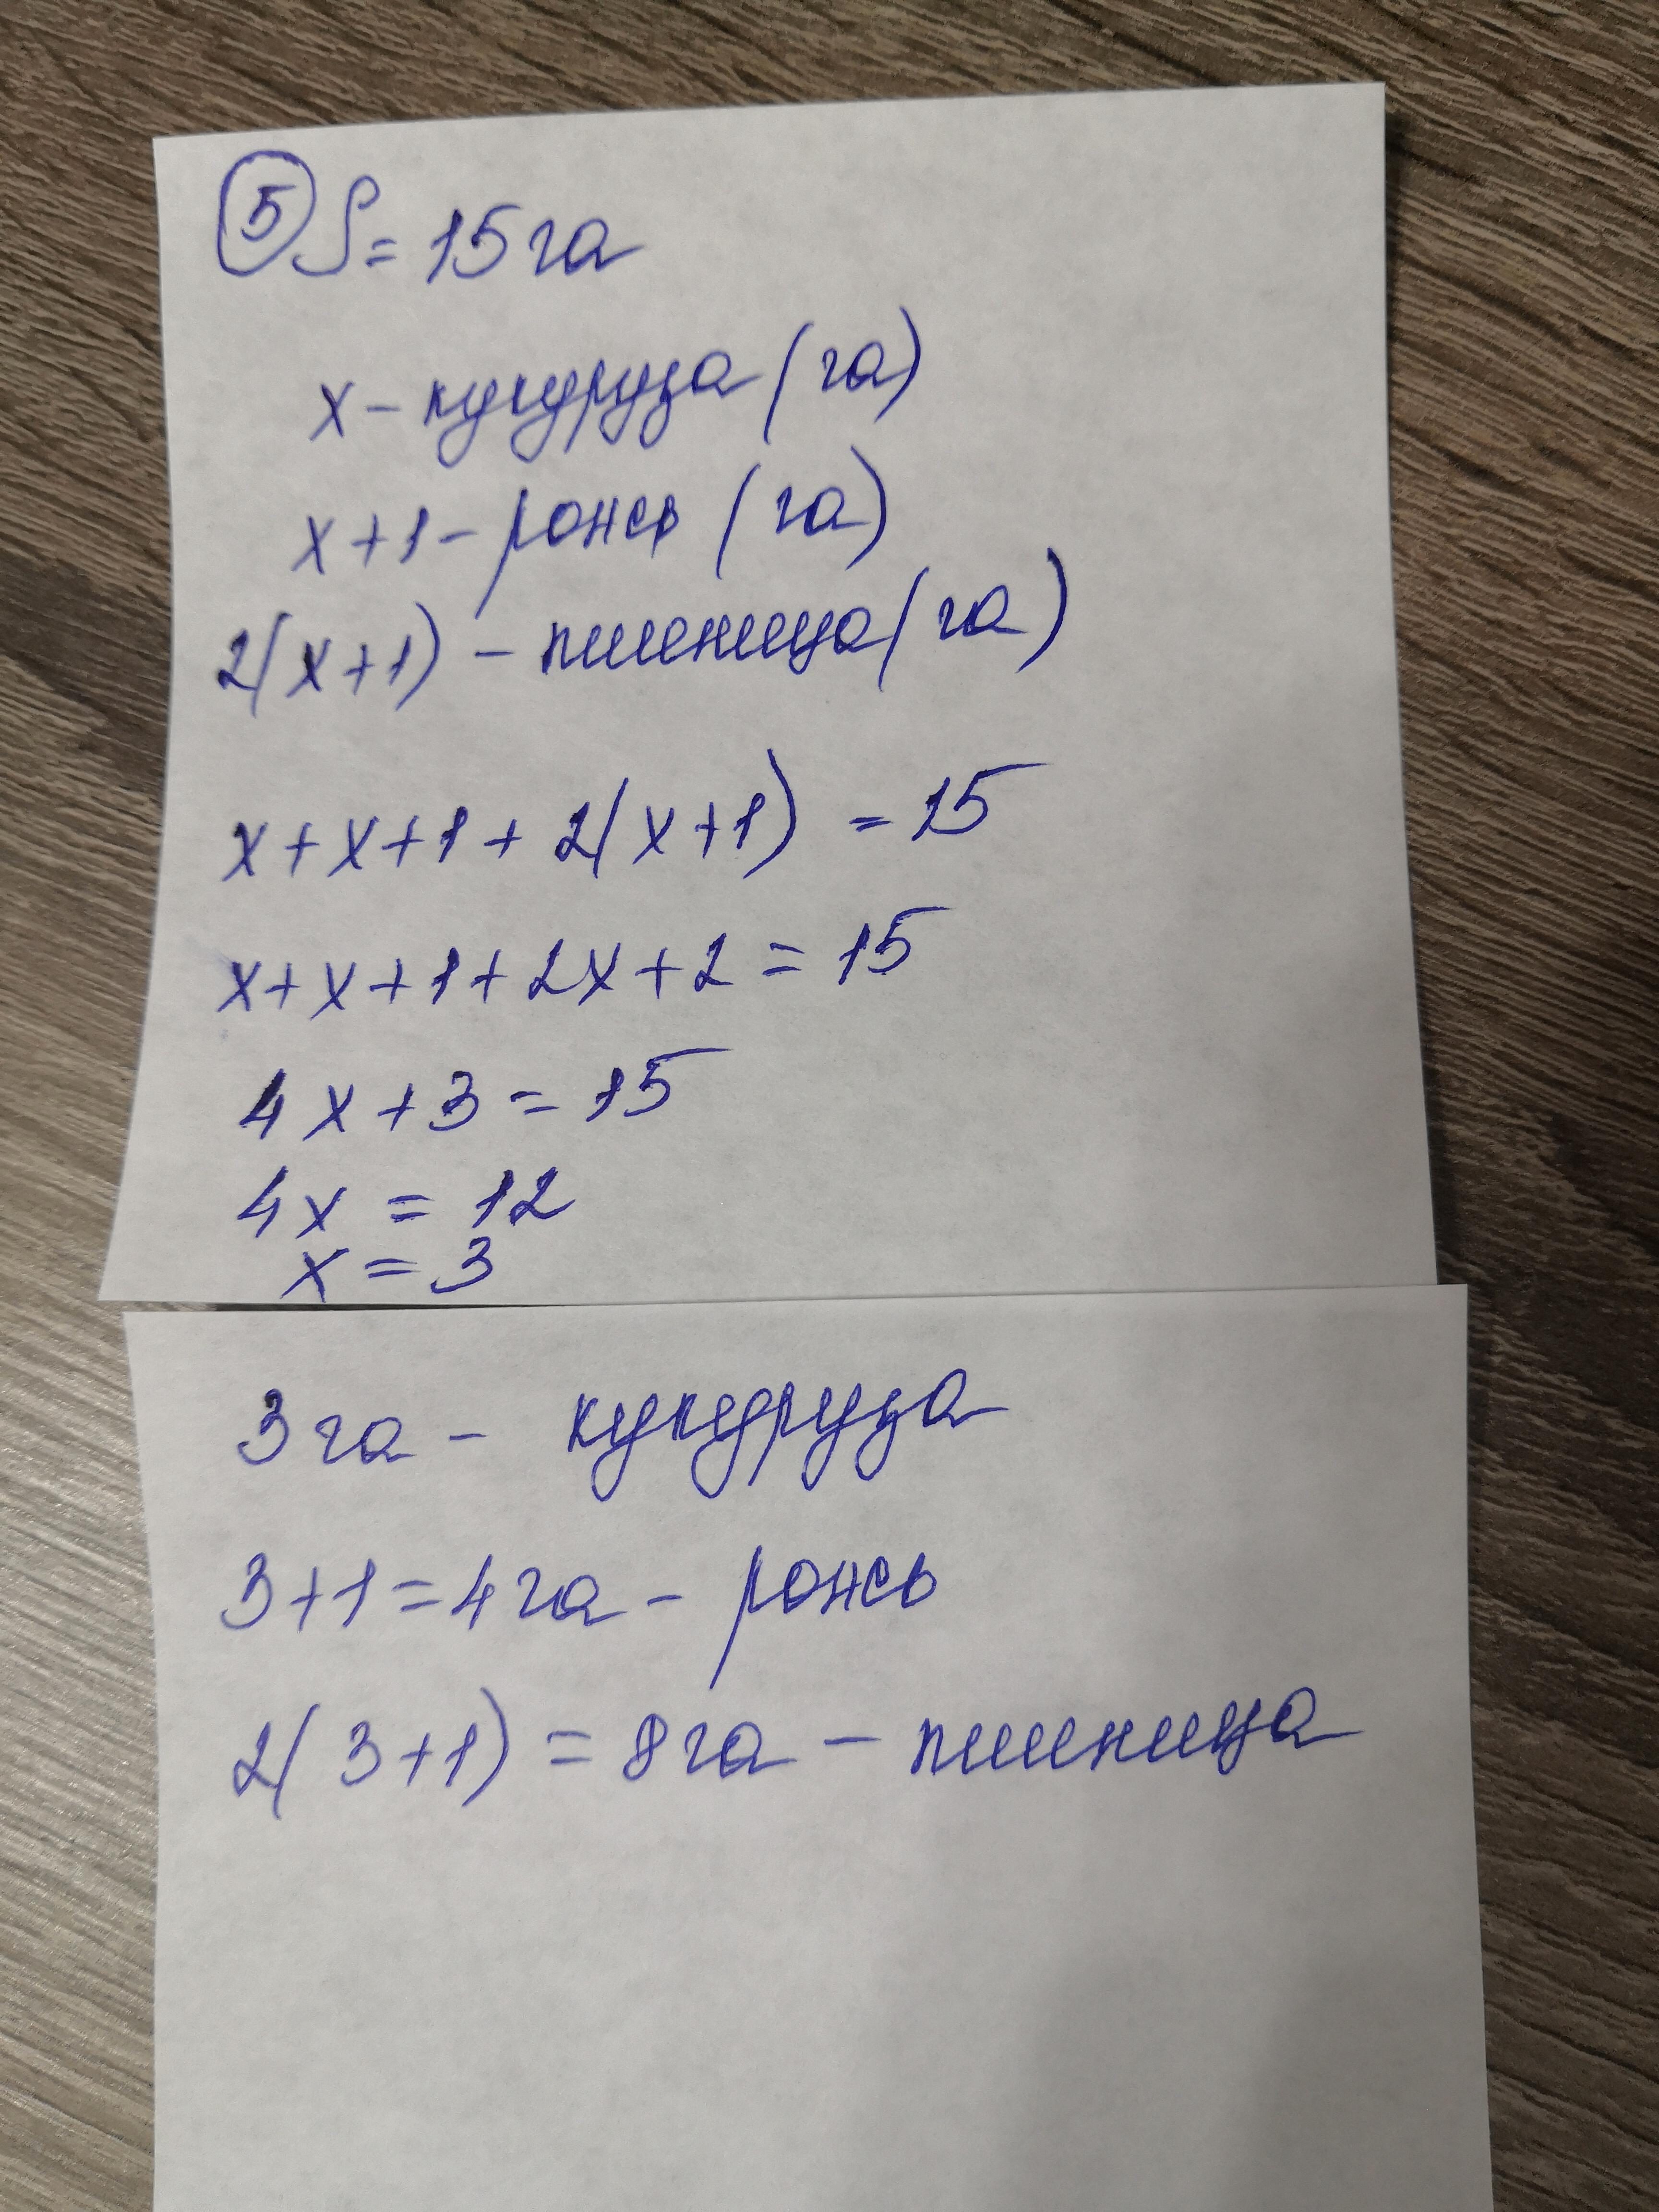 5 S = 15 га
x - кукуруза (га)
x + 1 - рожь (га)
2(x+1) - пшеница (га)
x + x + 1 + 2(x+1) = 15
x + x + 1 + 2x + 2 = 15
4x + 3 = 15
4x = 12
x = 3
3 га - кукуруза
3 + 1 = 4 га - рожь
2(3+1) = 8 га - пшеница